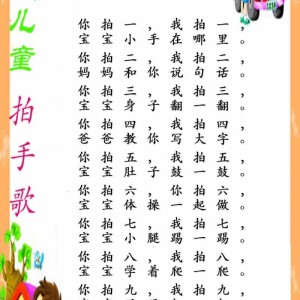 儿童拍手歌
你拍一，我拍一，
宝宝小手在哪里。
你拍二，我拍二，
妈妈和你说句话。
你拍三，我拍三，
宝宝身子翻一翻。
你拍四，我拍四，
爸爸教你写大字。
你拍五，我拍五，
宝宝肚子鼓一鼓。
你拍六，你拍六，
宝宝体操一起做。
你拍七，我拍七，
宝宝小腿踢一踢。
你拍八，我拍八，
宝宝学着爬一爬。
你拍九，我拍九，